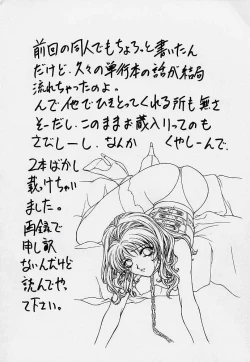 前回の同人でもちょろっと書いたん
だけど、久々の単行本の話が結局
流れちゃったのよ。
んで他でひきとってくれる所も無さ
そーだし、このままお蔵入りってのも
さびしーし、なんか くやしーんで、
2本ばかし
載っけちゃい
ました。
再録で
申し訳
ないんだけど
読んでや
て下さい。